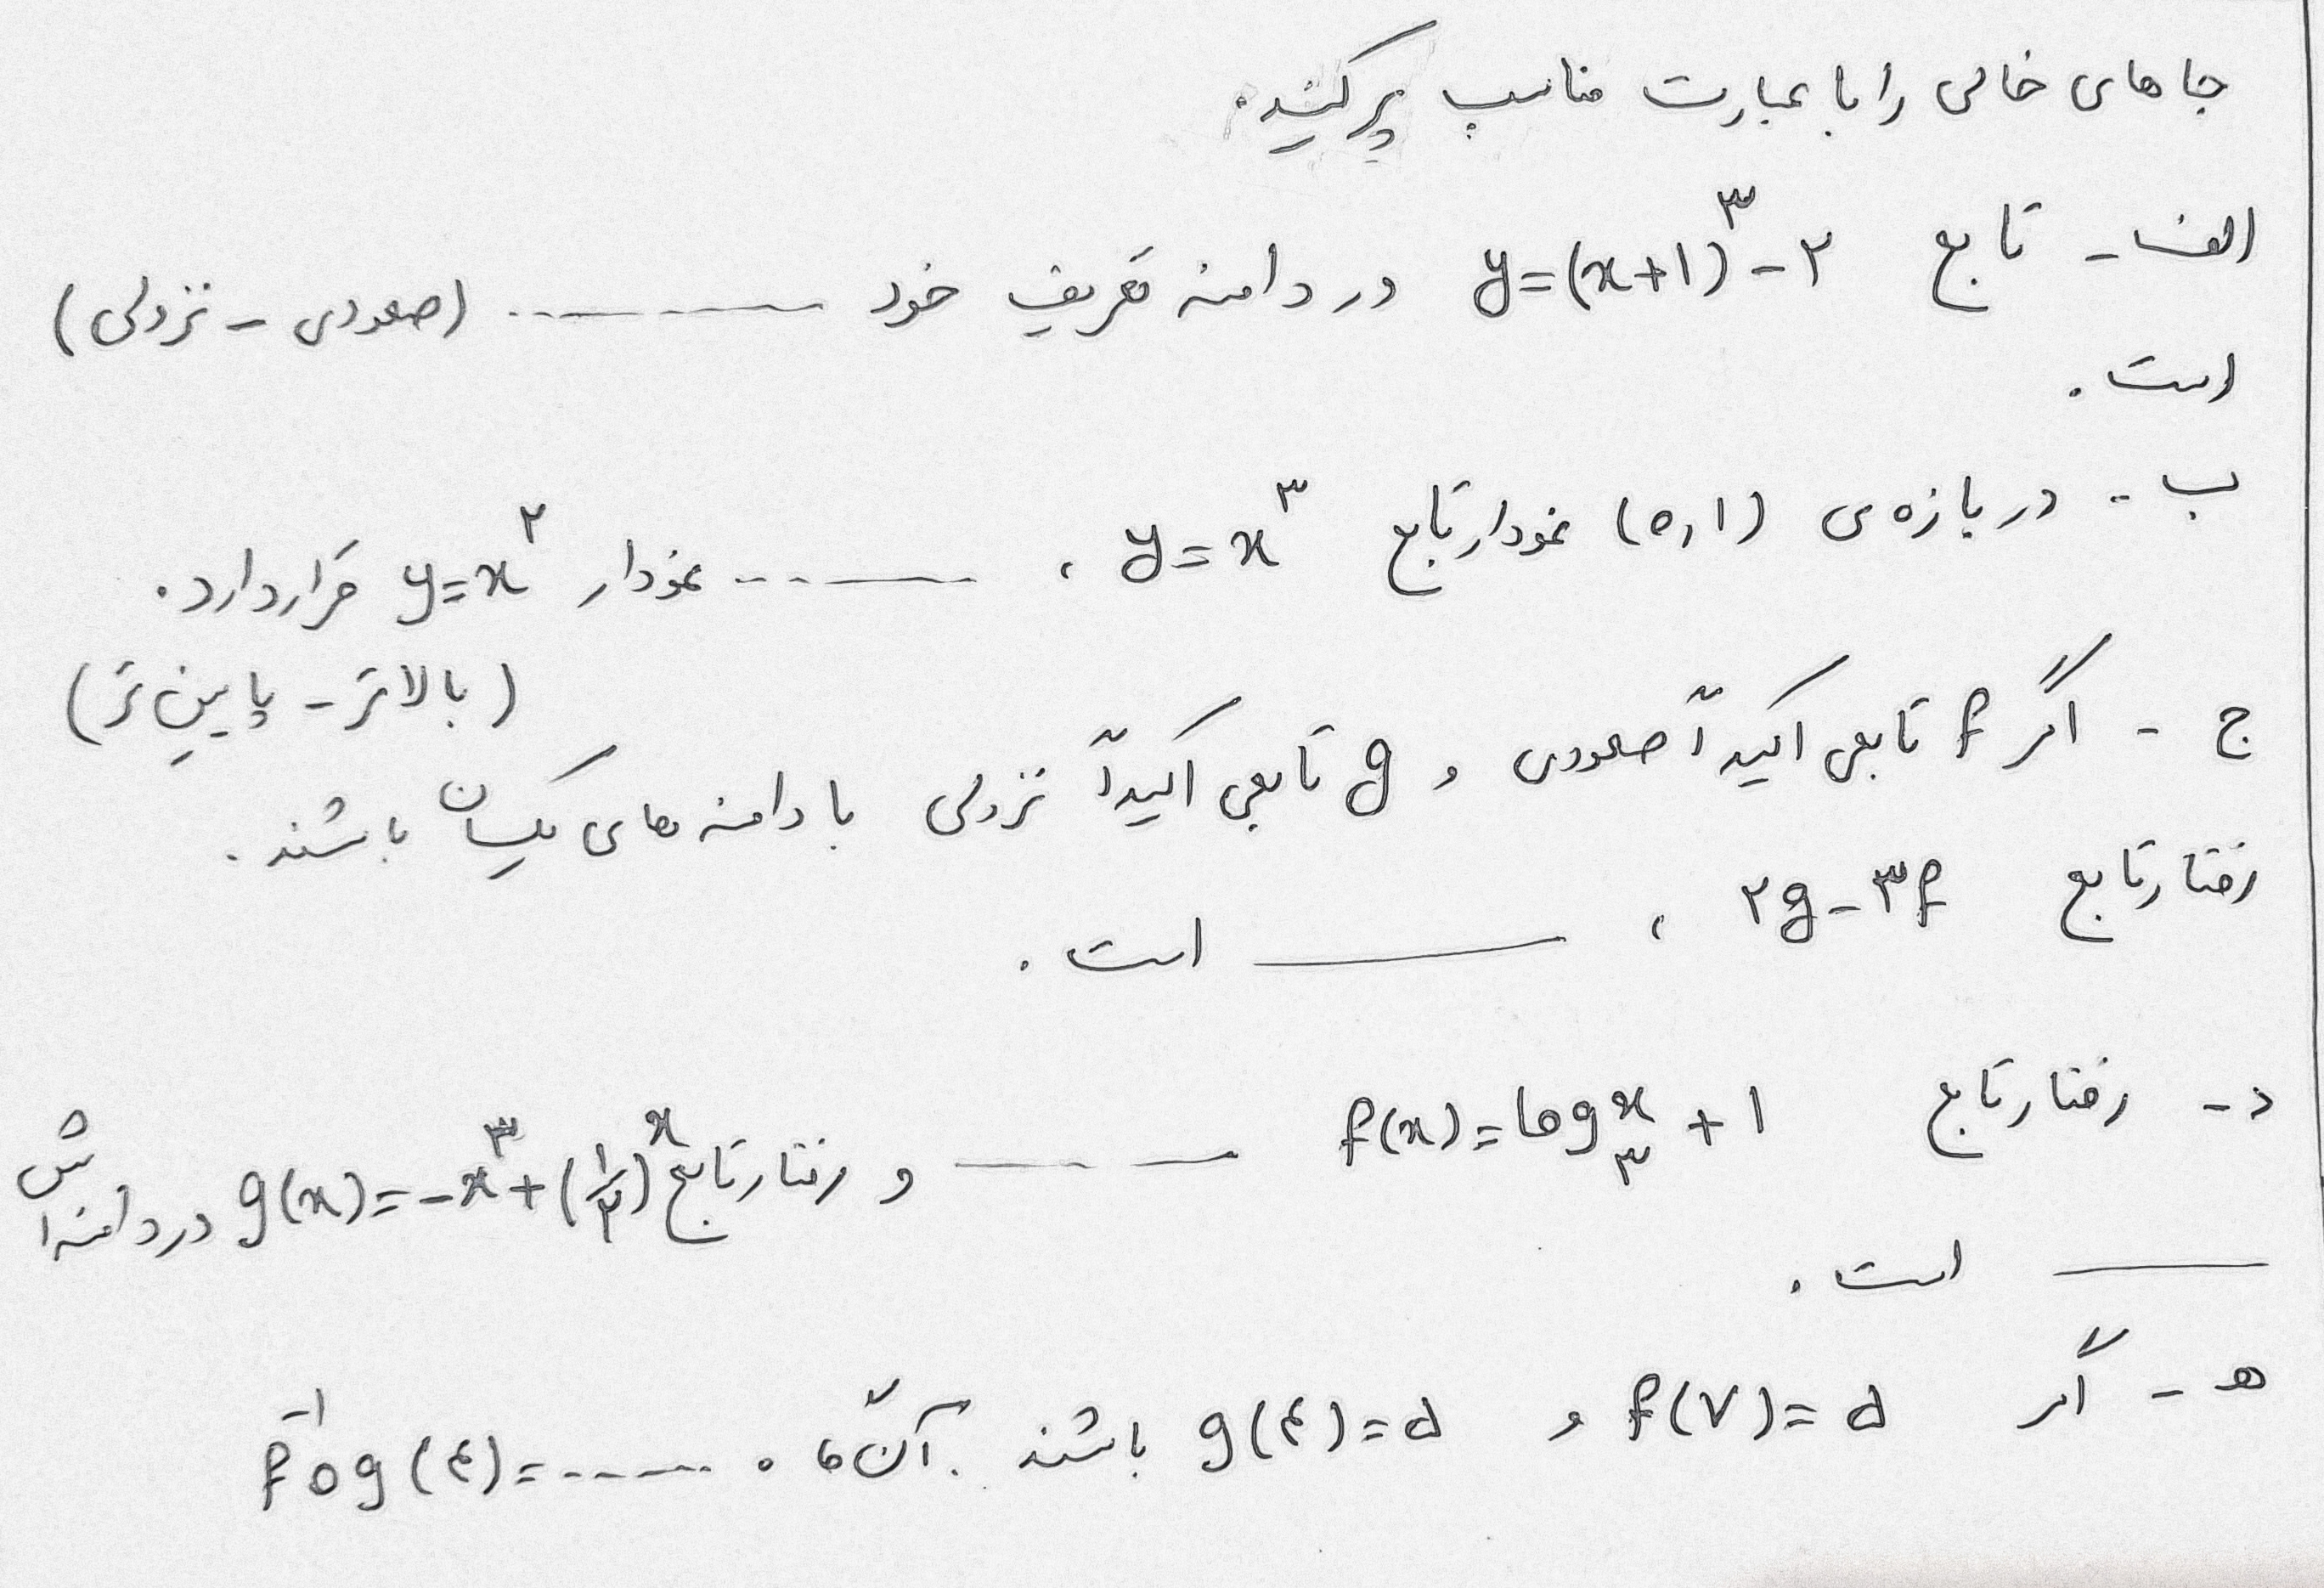 جاهای خالی را با عبارت مناسب پر کنید.
الف - تابع y=(x+۱)^۳-۲ در دامنه تعریف خود ........ (صعودی - نزولی)
است.
ب - در بازه‌ی (۰,۱) نمودار تابع y=x^۳ ، ........ نمودار y=x^۲ قرار دارد.
(بالاتر - پایین‌تر)
ج - اگر f تابعی اکیداً صعودی و g تابعی اکیداً نزولی با دامنه‌های یکسان باشند.
رفتار تابع ۲g-۳f ، ____ است.
د - رفتار تابع f(x)=log_۳^x + ۱ ____ و رفتار تابع g(x)=-x^۳+(۱/۲)^x در دامنه‌اش
____ است.
ه - اگر f(۷)=۵ و g(۴)=۵ باشند. آن‌گاه f^-۱og(۴)=........